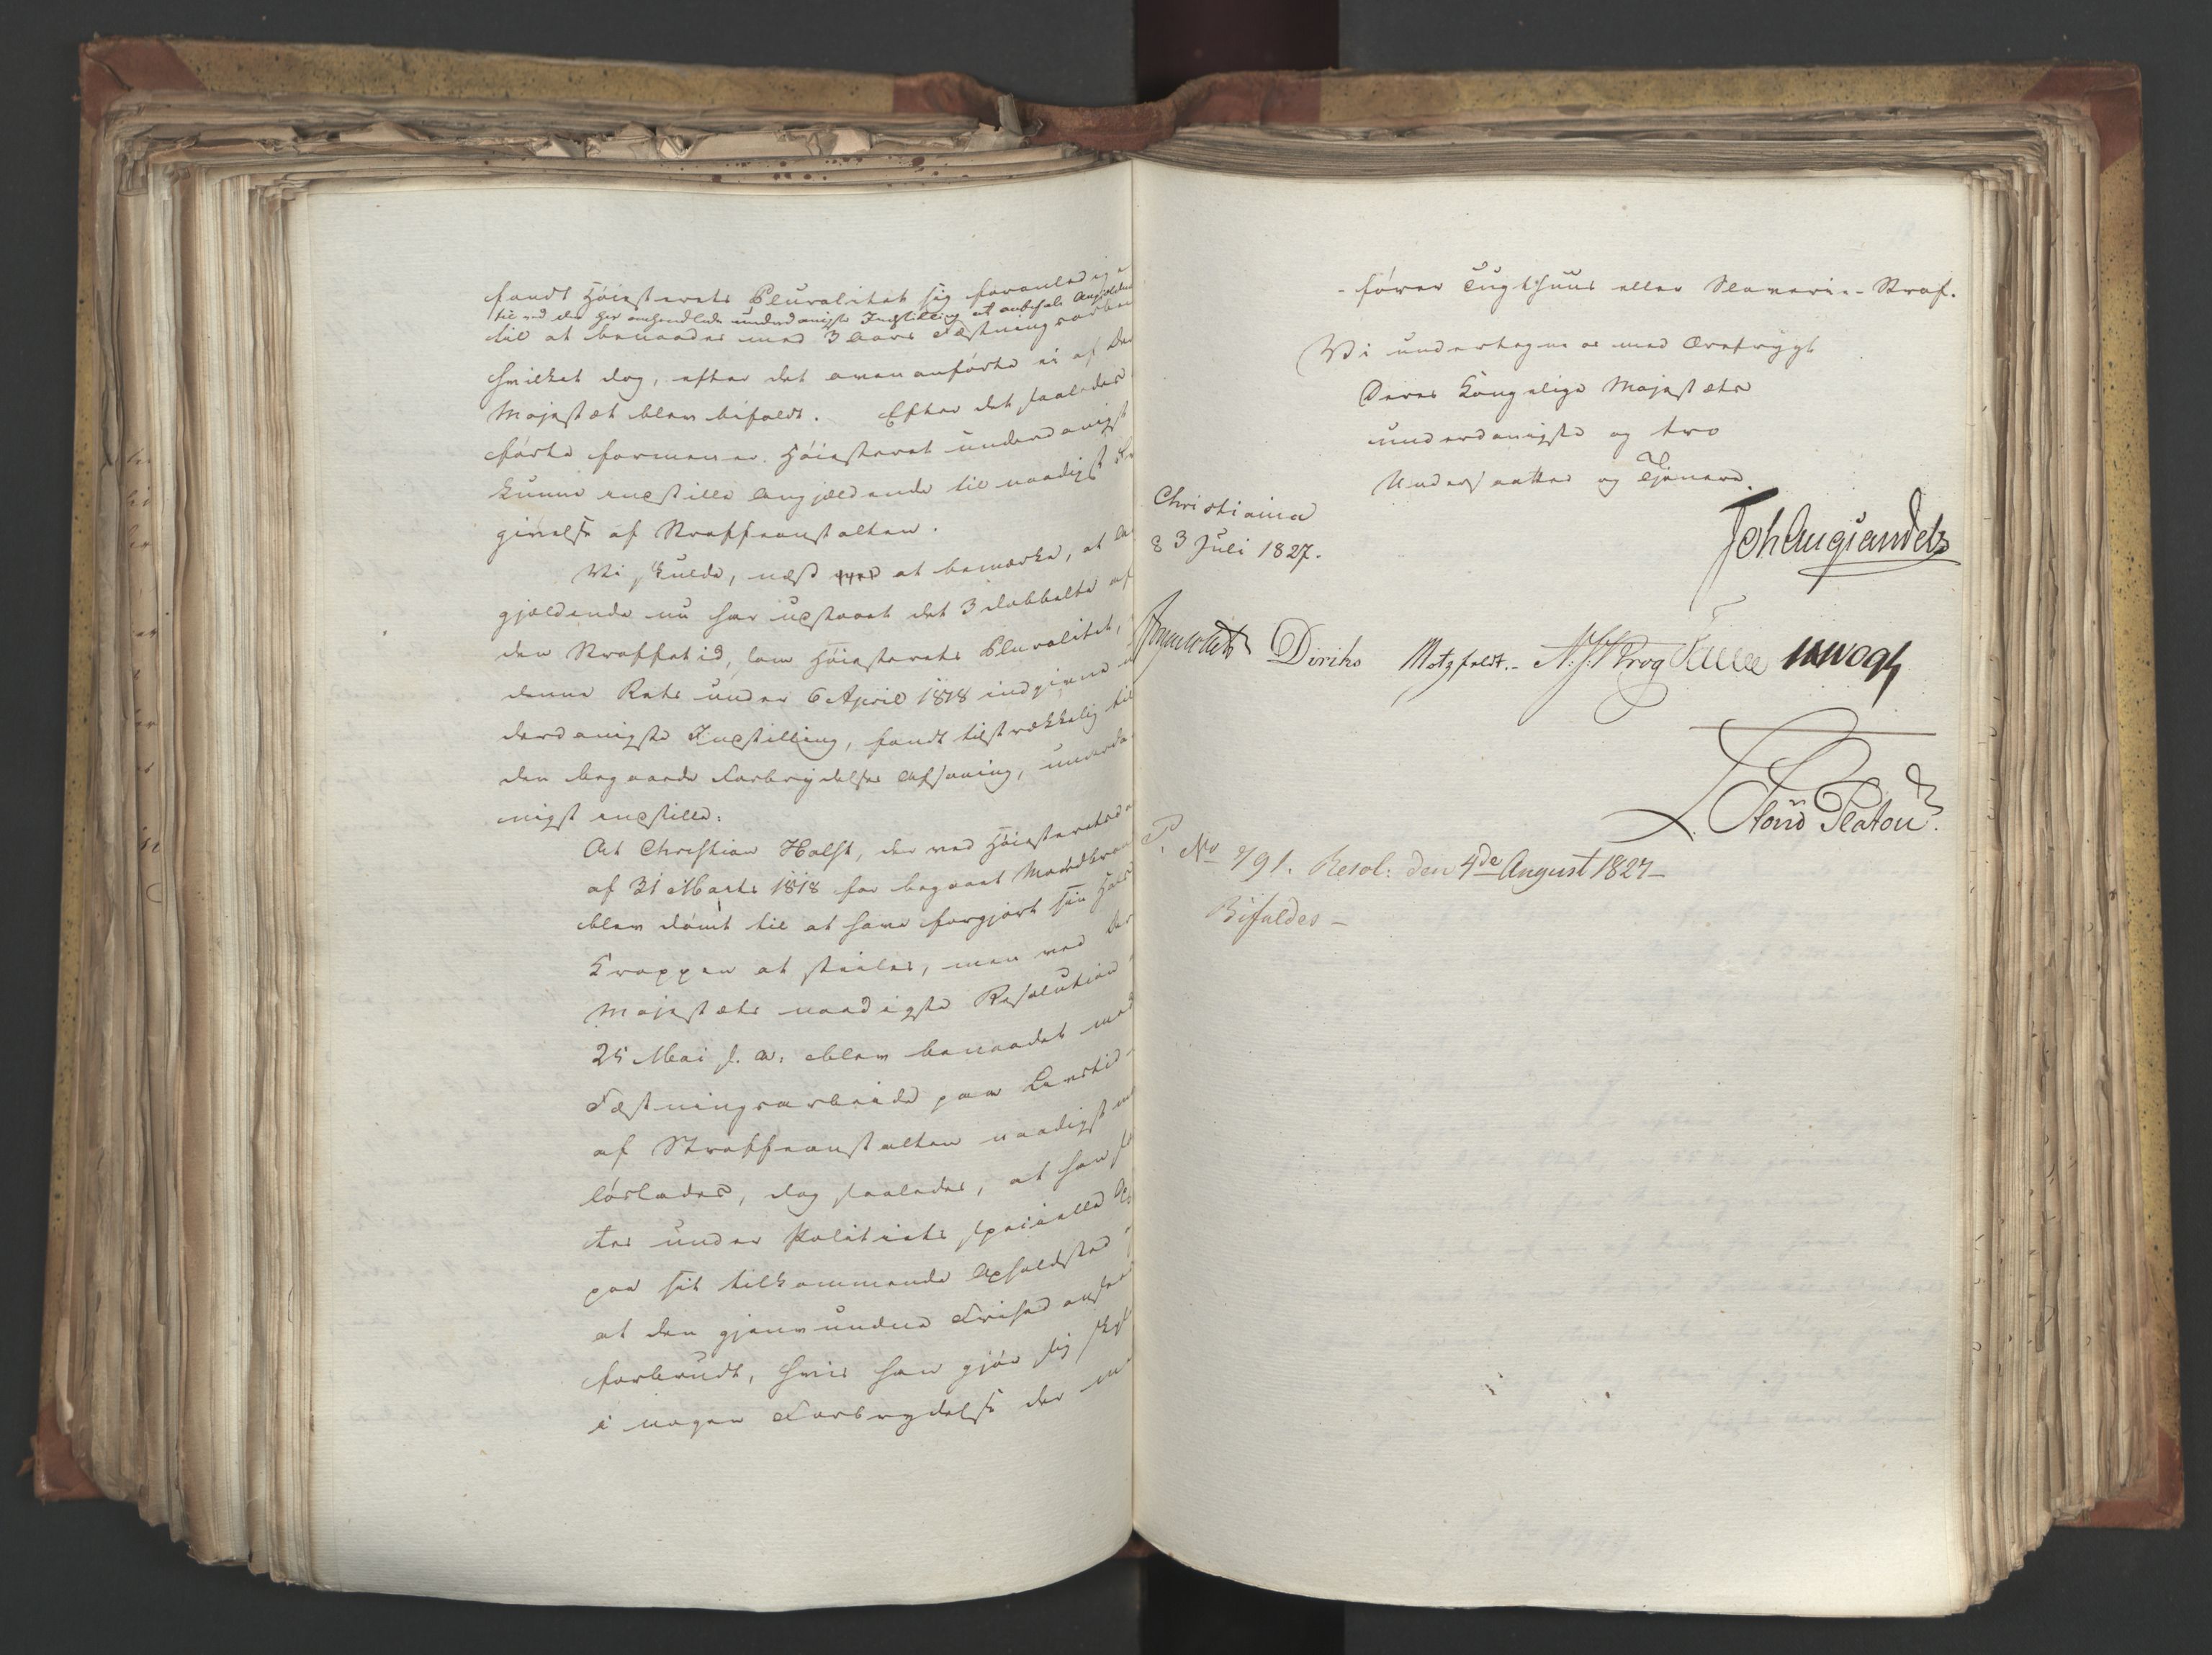 fandt Høiesterets Pluralitet sig foranledige
til ved den her omhandlede underdanigste Indstilling at anbefale Angjeldende
til at benaades med 3 Aars Fæstningsarbei
hvilket dog, efter det ovenanførte ei af Der
Majestæt blev bifaldt. Efter det saaledes
førte formener Høiesteret underdanigst
kunne indstille Angjældende til naadigst Lø
givelse af Straffeanstalten.
Vi skulde, næst at bemærke, at An
gjældende nu har udstaaet det 3 dobbelte af
den Straffetid, som Høiesterets Pluralitet, i
denne Rets under 6 April 1818 indgivne un
derdanigste Indstilling, fandt tilstrækkelig til
den begaaede Forbrydelses Afsoning, underda
nigst indstille:
At Christian Holst, der ved Høiesteretsdo
af 31 Marts 1818 for begaaet Mordbran
blev dømt til at have forgjort sin Hals
Kroppen at steiles, men ved Der
Majestæts naadigste Resolution
25 Mai s. A. blev benaadet med
Fæstningsarbeide paa Livstid
af Straffeanstalten naadigst m
løslades, dog saaledes, at han sæ
tes under Politiets specielle Op
paa sit tilkommende Opholdssted
at den gjenvundne Frihed anse
forbrudt, hvis han gjør sig skyl
i nogen Forbrydelse der m
-fører Tugthuus eller Slaverie-Straf.
Vi undertegne os med Ærefrygt
Deres Kongelige Majestæts
underdanigste og tro
Undersaatter og Tjenere.
Christiania
d 3 Juli 1827.
Joh Aug Sandels
Sommerhielm Diriks Motzfeldt.- N. J. Krog Fasting JH Vogt
L. Stoud Platou
P. No 791. Resol: den 4de August 1827-
Bifaldes-